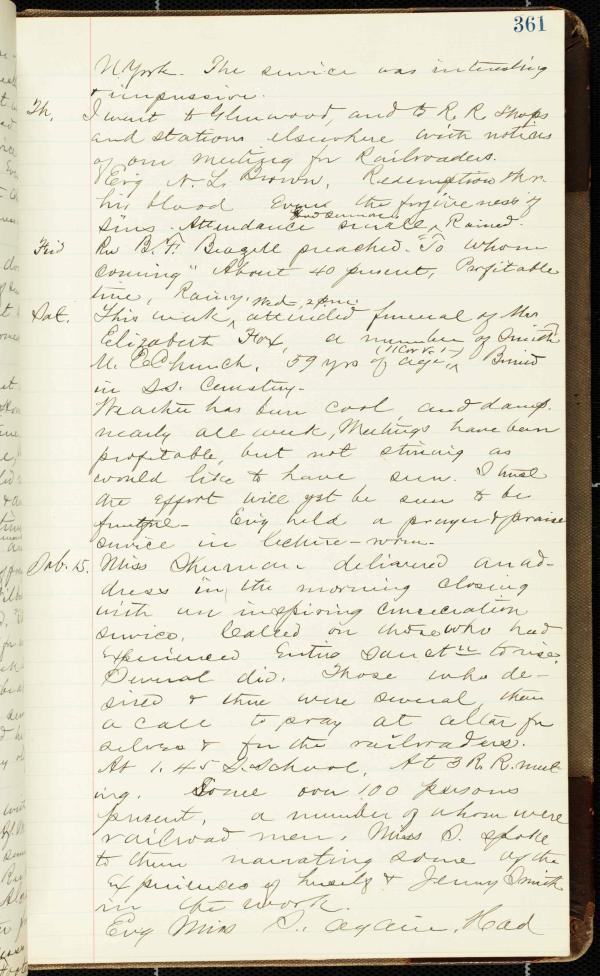 361
N. York. The service was interesting
& impressive.
Th. I went to Glenwood, and to R. R. Shops
and stations elsewhere with notices
of our meeting for Railroaders.
Ev'g N. L. Brown, Redemption thr.
his blood Even the forgiveness of
sins. Attendance small, Rained.
Good seminary
Fri'd Rev B. F. Beazell preached. "To whom
coming" About 40 present, Profitable
time, Rainy.
Wed, 2 p.m.
Sat. This week, attended funeral of Mrs
Elizabeth Fox, a member of Smith
M. E. Church, 59 yrs of age, Buried
(1 Cor V. 1-)
in S.S. Cemetery.
Weather has been cool, and damp.
nearly all week, Meetings have been
profitable, but not strong as
would like to have seen. I trust
the effort will yet be seen to be
fruitful - Ev'g held a prayer & praise
service in lecture-room.
Sab. 15. Miss Sherman delivered an ad-
dress in the morning closing
with an inspiring consecration
service. Called on those who had
experienced Entire Sanct'n to rise.
Several did. Those who de-
sired & there were several, then
a call to pray at altar for
selves & for the railroaders.
At 1.45 S. School, At 3 R. R. meet
ing. Some over 100 persons
present, a number of whom were
railroad men. Miss S. spoke
to them narrating some of the
Experiences of herself & Jenny Smith
in the work.
Ev'g Miss S., again. Had